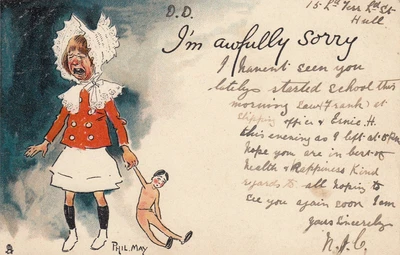 D.D.
Hull
I'm awfully sorry
I haven't seen you
lately started school this
morning saw (Frank) at
shipping office & Ernie. H.
this evening as I left at
hope you are in best of
health & happiness Kind
regards to all hoping to
see you again soon I am
yours Sincerely
PHIL. MAY